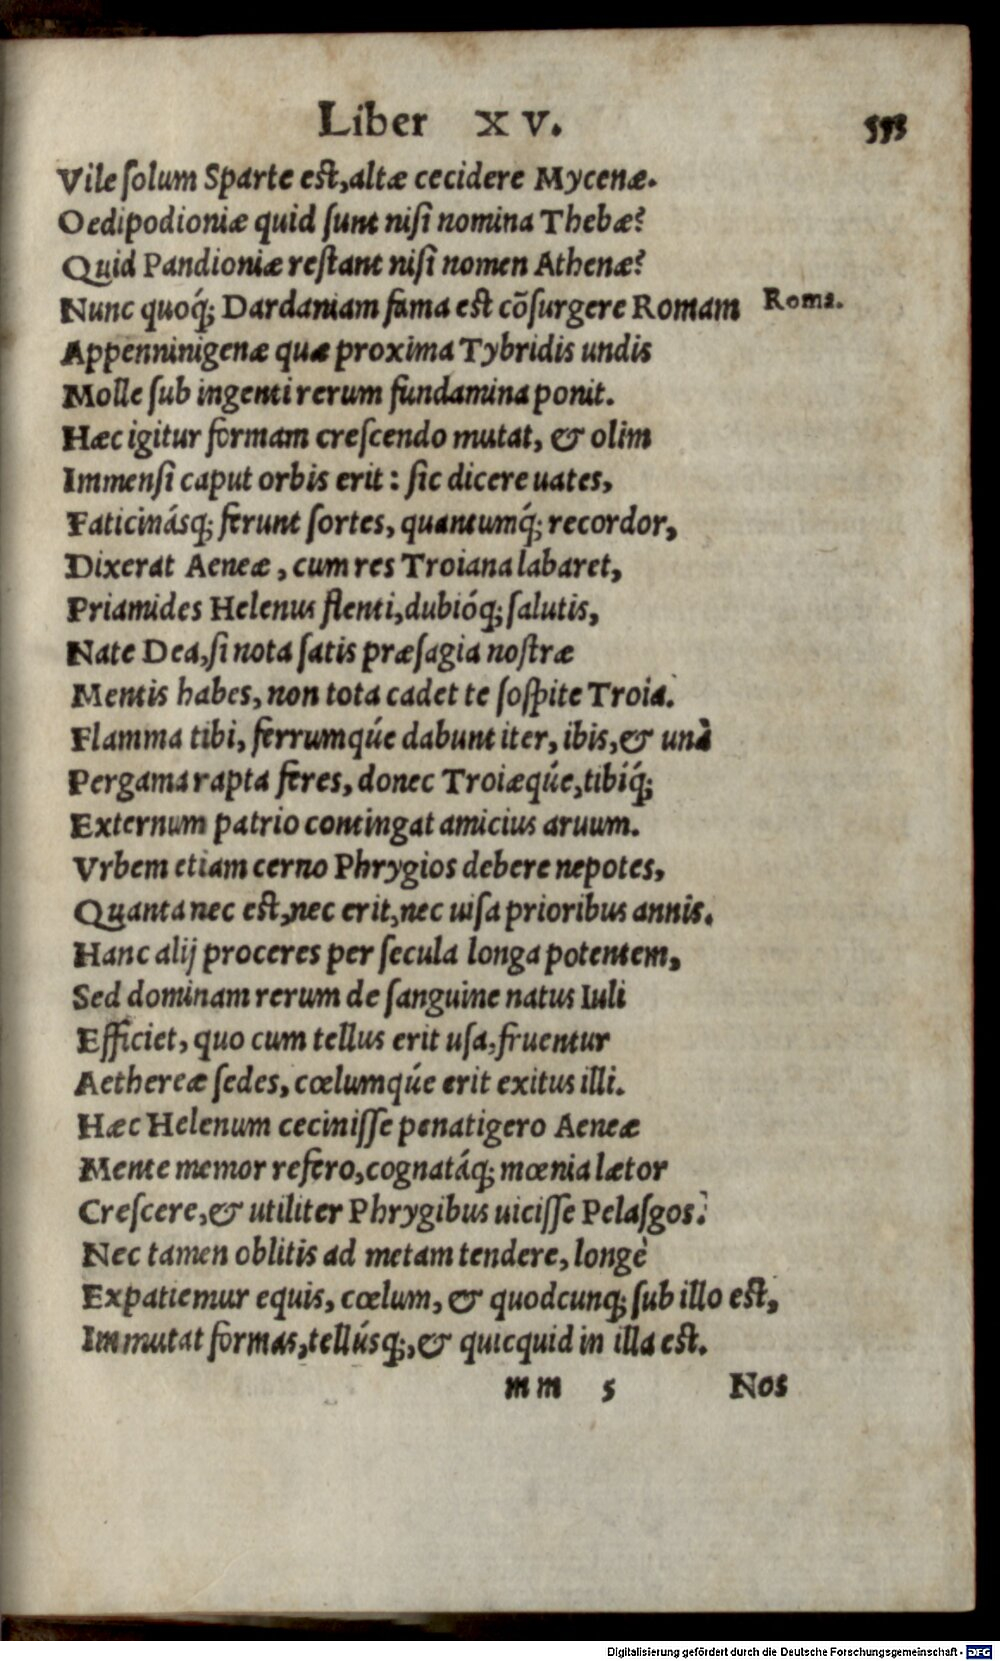 Liber XV. 553
Vile ſolum Sparte eſt, altæ cecidere Mycenæ.
Oedipodioniæ quid ſunt niſi nomina Thebæ?
Quid Pandioniæ reſtant niſi nomen Athenæ?
Nunc quoq́; Dardaniam fama eſt cõſurgere Romam Roma.
Appenninigenæ quæ proxima Tybridis undis
Molle ſub ingenti rerum fundamina ponit.
Hæc igitur formam creſcendo mutat, & olim
Immenſi caput orbis erit: ſic dicere uates,
Faticinásq; ferunt ſortes, quantumq́; recordor,
Dixerat Aeneæ, cum res Troiana labaret,
Priamides Helenus flenti, dubióq; ſalutis,
Nate Dea, ſi nota ſatis præſagia noſtræ
Mentis habes, non tota cadet te ſoſpite Troia.
Flamma tibi, ferrumqúe dabunt iter, ibis, & unà
Pergama rapta feres, donec Troiæqúe, tibiq́;
Externum patrio contingat amicius aruum.
Vrbem etiam cerno Phrygios debere nepotes,
Quanta nec eſt, nec erit, nec uiſa prioribus annis.
Hanc alij proceres per ſecula longa potentem,
Sed dominam rerum de ſanguine natus Iuli
Efficiet, quo cum tellus erit uſa, fruentur
Aethereæ ſedes, cœlumqúe erit exitus illi.
Hæc Helenum ceciniſſe penatigero Aeneæ
Mente memor refero, cognatáq; mœnia lætor
Creſcere, & utiliter Phrygibus uiciſſe Pelaſgos.
Nec tamen oblitis ad metam tendere, longè
Expatiemur equis, cœlum, & quodcunq; ſub illo eſt,
Immutat formas, tellúsq;, & quicquid in illa eſt.
mm 5 Nos
Digitalisierung gefördert durch die Deutsche Forschungsgemeinschaft - DFG